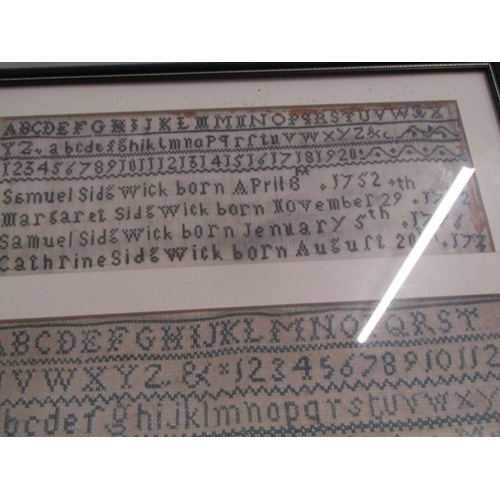 ABCDEFGHIJKLMNOPQRSTUVWX
YZ abcdefghiklmnopqrſtuvwXYZ&c
1234567891011121314151617181920
Samuel Sidgwick born April 8 1752
Margaret Sidgwick born November 29 th
Samuel Sidgwick born Jenuary 5th
Cathrine Sidgwick born Auguſt 20
ABCDEFGHIJKLMNOPQRST
VWXYZ & 123456789101112
abcdefghijklmnopqrstuvwxy